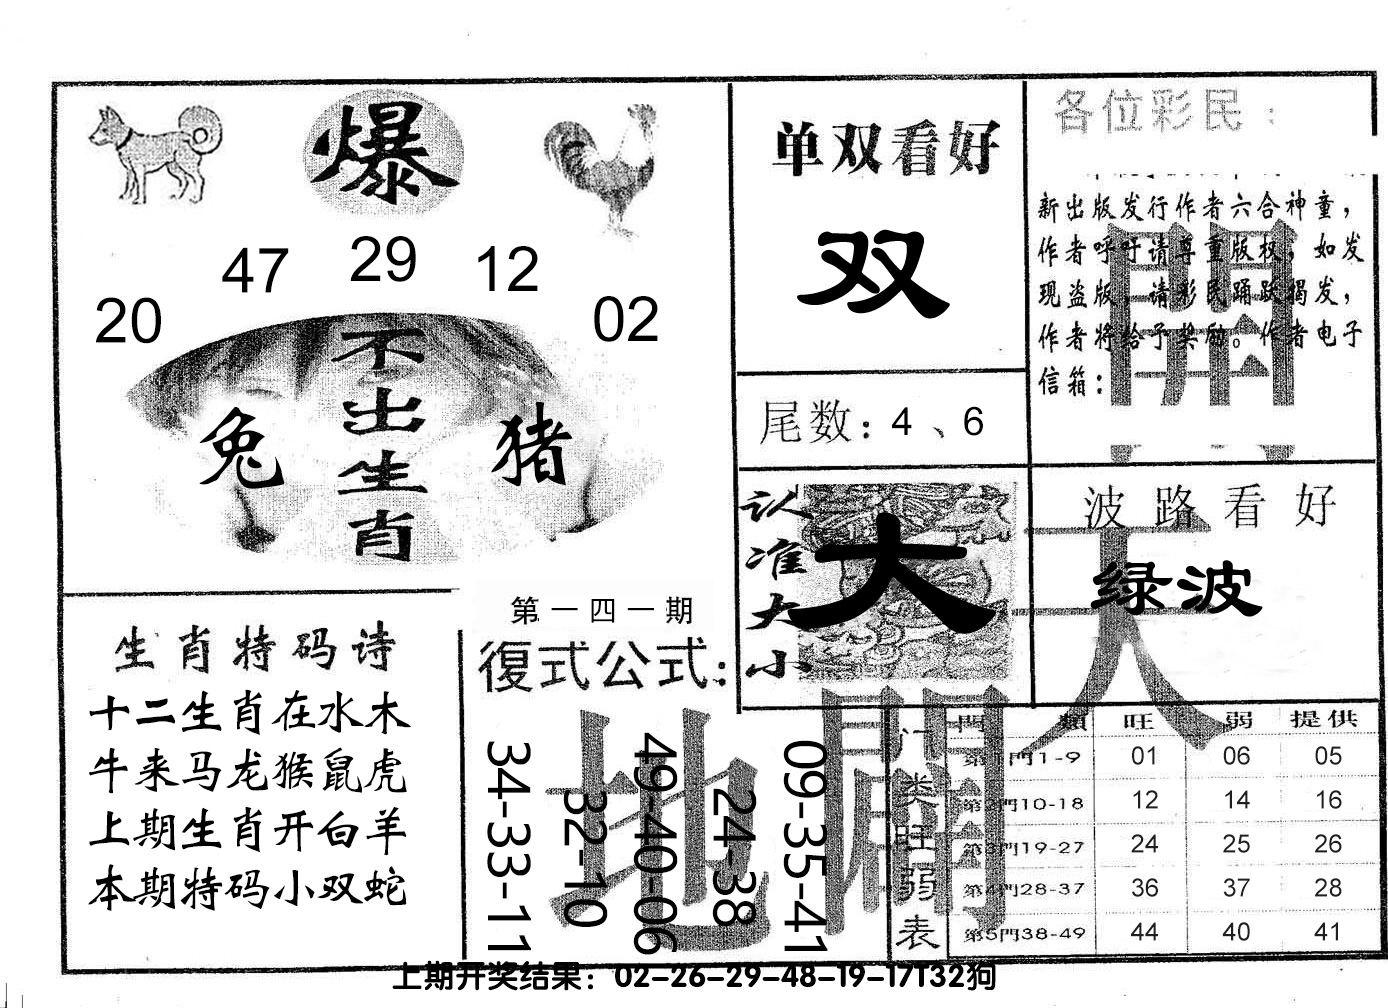 爆
47 29 12
20 02
不出生肖
兔 猪
单双看好
双
尾数：4、6
各位彩民：
新出版发行作者六合神童，
作者呼吁请尊重版权，如发
现盗版，请彩民踊跃揭发，
作者将给予奖励。作者电子
信箱：
開
认准大小
大
波路看好
绿波
天
生肖特码诗
十二生肖在水木
牛来马龙猴鼠虎
上期生肖开白羊
本期特码小双蛇
第一四一期
復式公式：
34-33-11
32-10
49-40-06
24-38
09-35-41
地
門类旺弱表
門類 旺 弱 提供
第1門1-9 01 06 05
第2門10-18 12 14 16
第3門19-27 24 25 26
第4門28-37 36 37 28
第5門38-49 44 40 41
上期开奖结果：02-26-29-48-19-17T32狗